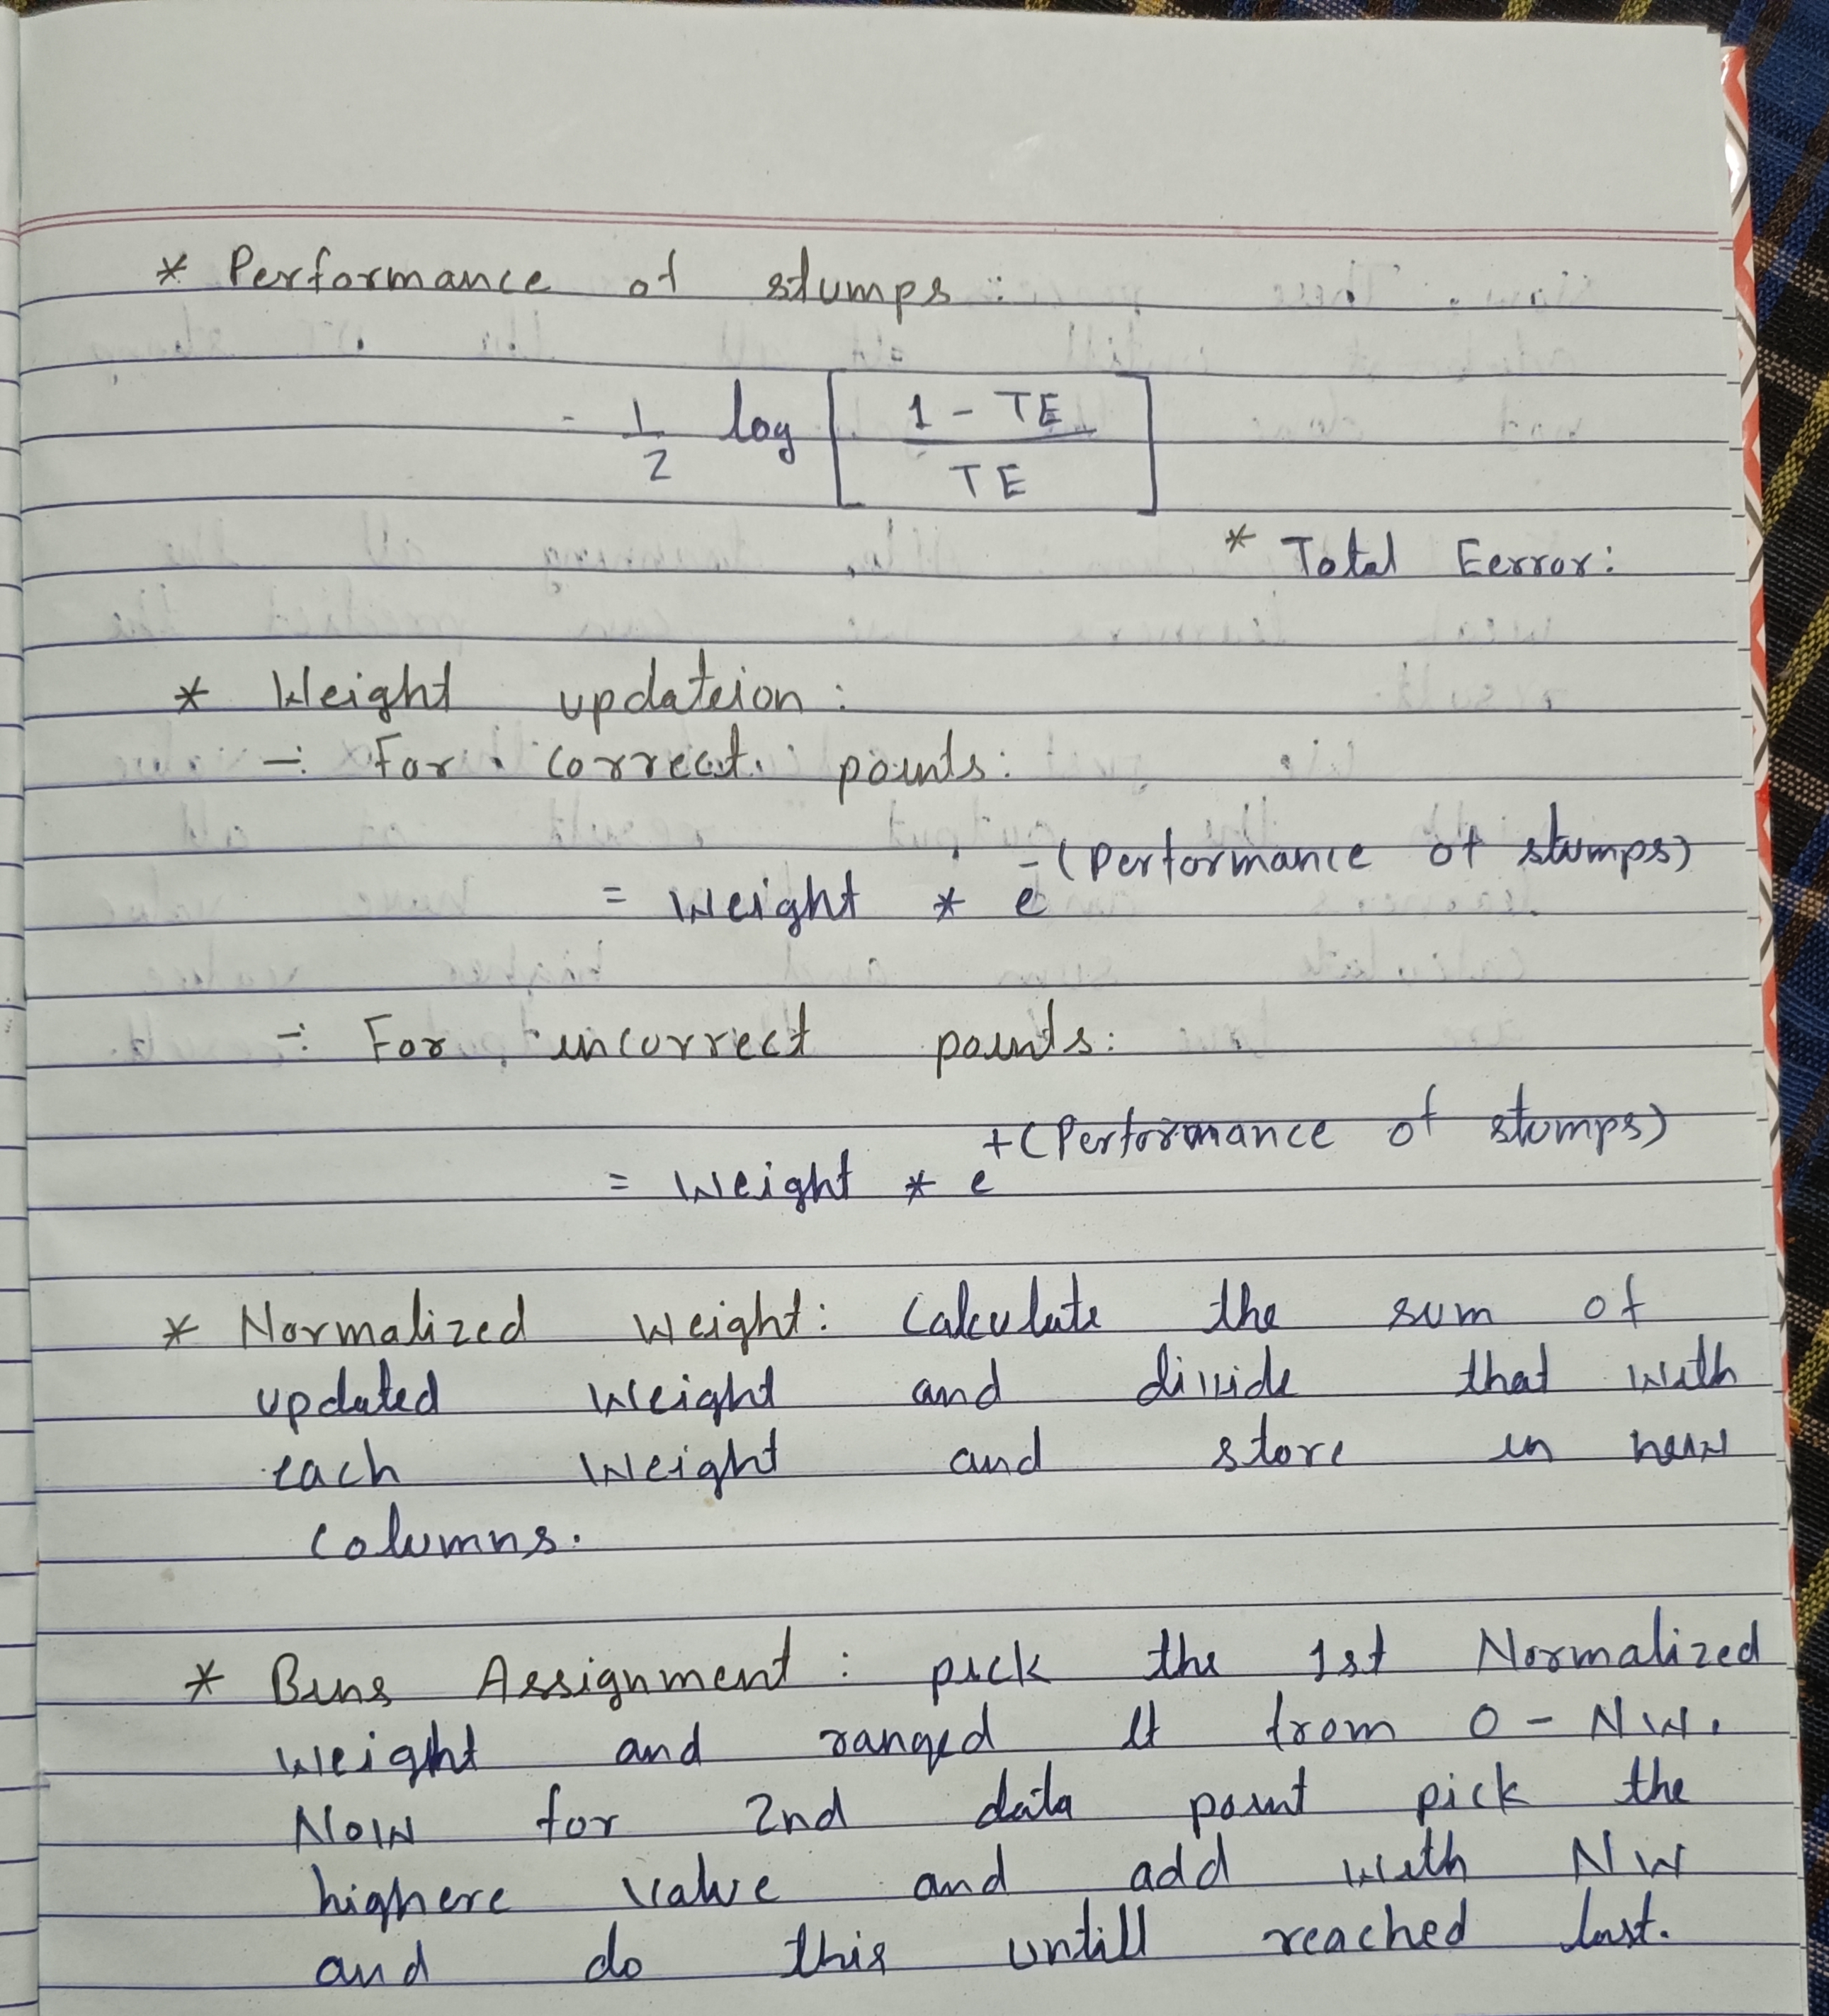 * Performance of stumps :
- 1/2 log [ 1 - TE / TE ]
* Total Eerror:
* Weight updateion :
-: For correct points:
= Weight * e^-(Performance of stumps)
-: For incorrect points:
= Weight * e^+(Performance of stumps)
* Normalized Weight: Calculate the sum of
updated Weight and divide that with
each Weight and store in new
columns.
* Bins Assignment : pick the 1st Normalized
weight and ranged it from 0 - NW.
Now for 2nd data point pick the
highere value and add with NW
and do this untill reached last.